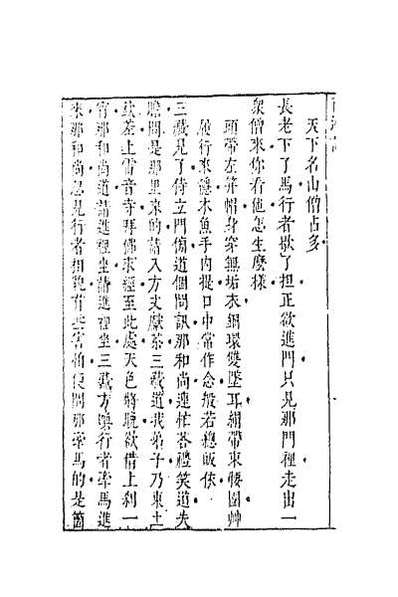 天下名山僧占多
長老下了馬行者歇了担正欲進門只見那門裡走出一
衆僧來你看他怎生麽樣
頭帶左笄帽身穿無垢衣銅環雙墜耳絹帶束腰圍艸
履行來穩木魚手内提口中常作念般若總皈依
三藏見了侍立門傍道個問訊那和尚連忙荅禮笑道失
瞻問是那里來的請入方丈獻茶三藏道我弟子乃東土
欽差上雷音寺拜佛求經至此處天色將晚欲借上刹一
宵那和尚道請進裡坐請進裡坐三藏方喚行者牽馬進
來那和尚忽見行者相貌有些害怕便問那牽馬的是箇